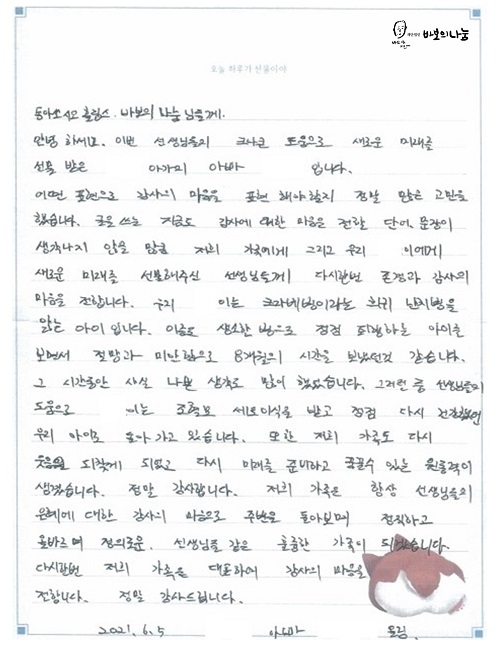 바보의나눔
오늘 하루가 선물이야
동아쏘시오 홀딩스. 바보의 나눔 님들께.
안녕하세요. 이번 선생님들의 크나큰 도움으로 새로운 미래를
선물 받은 아가의 아빠 입니다.
어떤 표현으로 감사의 마음을 표현 해야 할지 정말 많은 고민을
했습니다. 글을 쓰는 지금도 감사에 대한 마음을 전할 단어, 문장이
생각나지 않을 만큼 저희 가족에게 그리고 우리 이에게
새로운 미래를 선물해주신 선생님들께 다시한번 존경과 감사의
마음을 전합니다. 우리 이는 크라베병이라는 희귀 난치병을
앓는 아이 입니다. 이름도 생소한 병으로 점점 퇴행하는 아이를
보면서 절망과 미안함으로 8개월의 시간을 보냈던것 같습니다.
그 시간동안 사실 나쁜 생각도 많이 했었습니다. 그러던 중 선생님들의
도움으로 이는 조혈모 세포이식을 받고 점점 다시 건강했던
우리 아이로 돌아 가고 있습니다. 또한 저희 가족도 다시
웃음을 되찾게 되었고 다시 미래를 준비하고 꿈꿀수 있는 원동력이
생겼습니다. 정말 감사합니다. 저희 가족은 항상 선생님들의
은혜에 대한 감사의 마음으로 주변을 돌아보며 정직하고
올바르며 정의로운. 선생님들 같은 훌륭한 가족이 되겠습니다.
다시한번 저희 가족을 대표하여 감사의 마음을
전합니다. 정말 감사드립니다.
2021. 6. 5 아빠 올림.